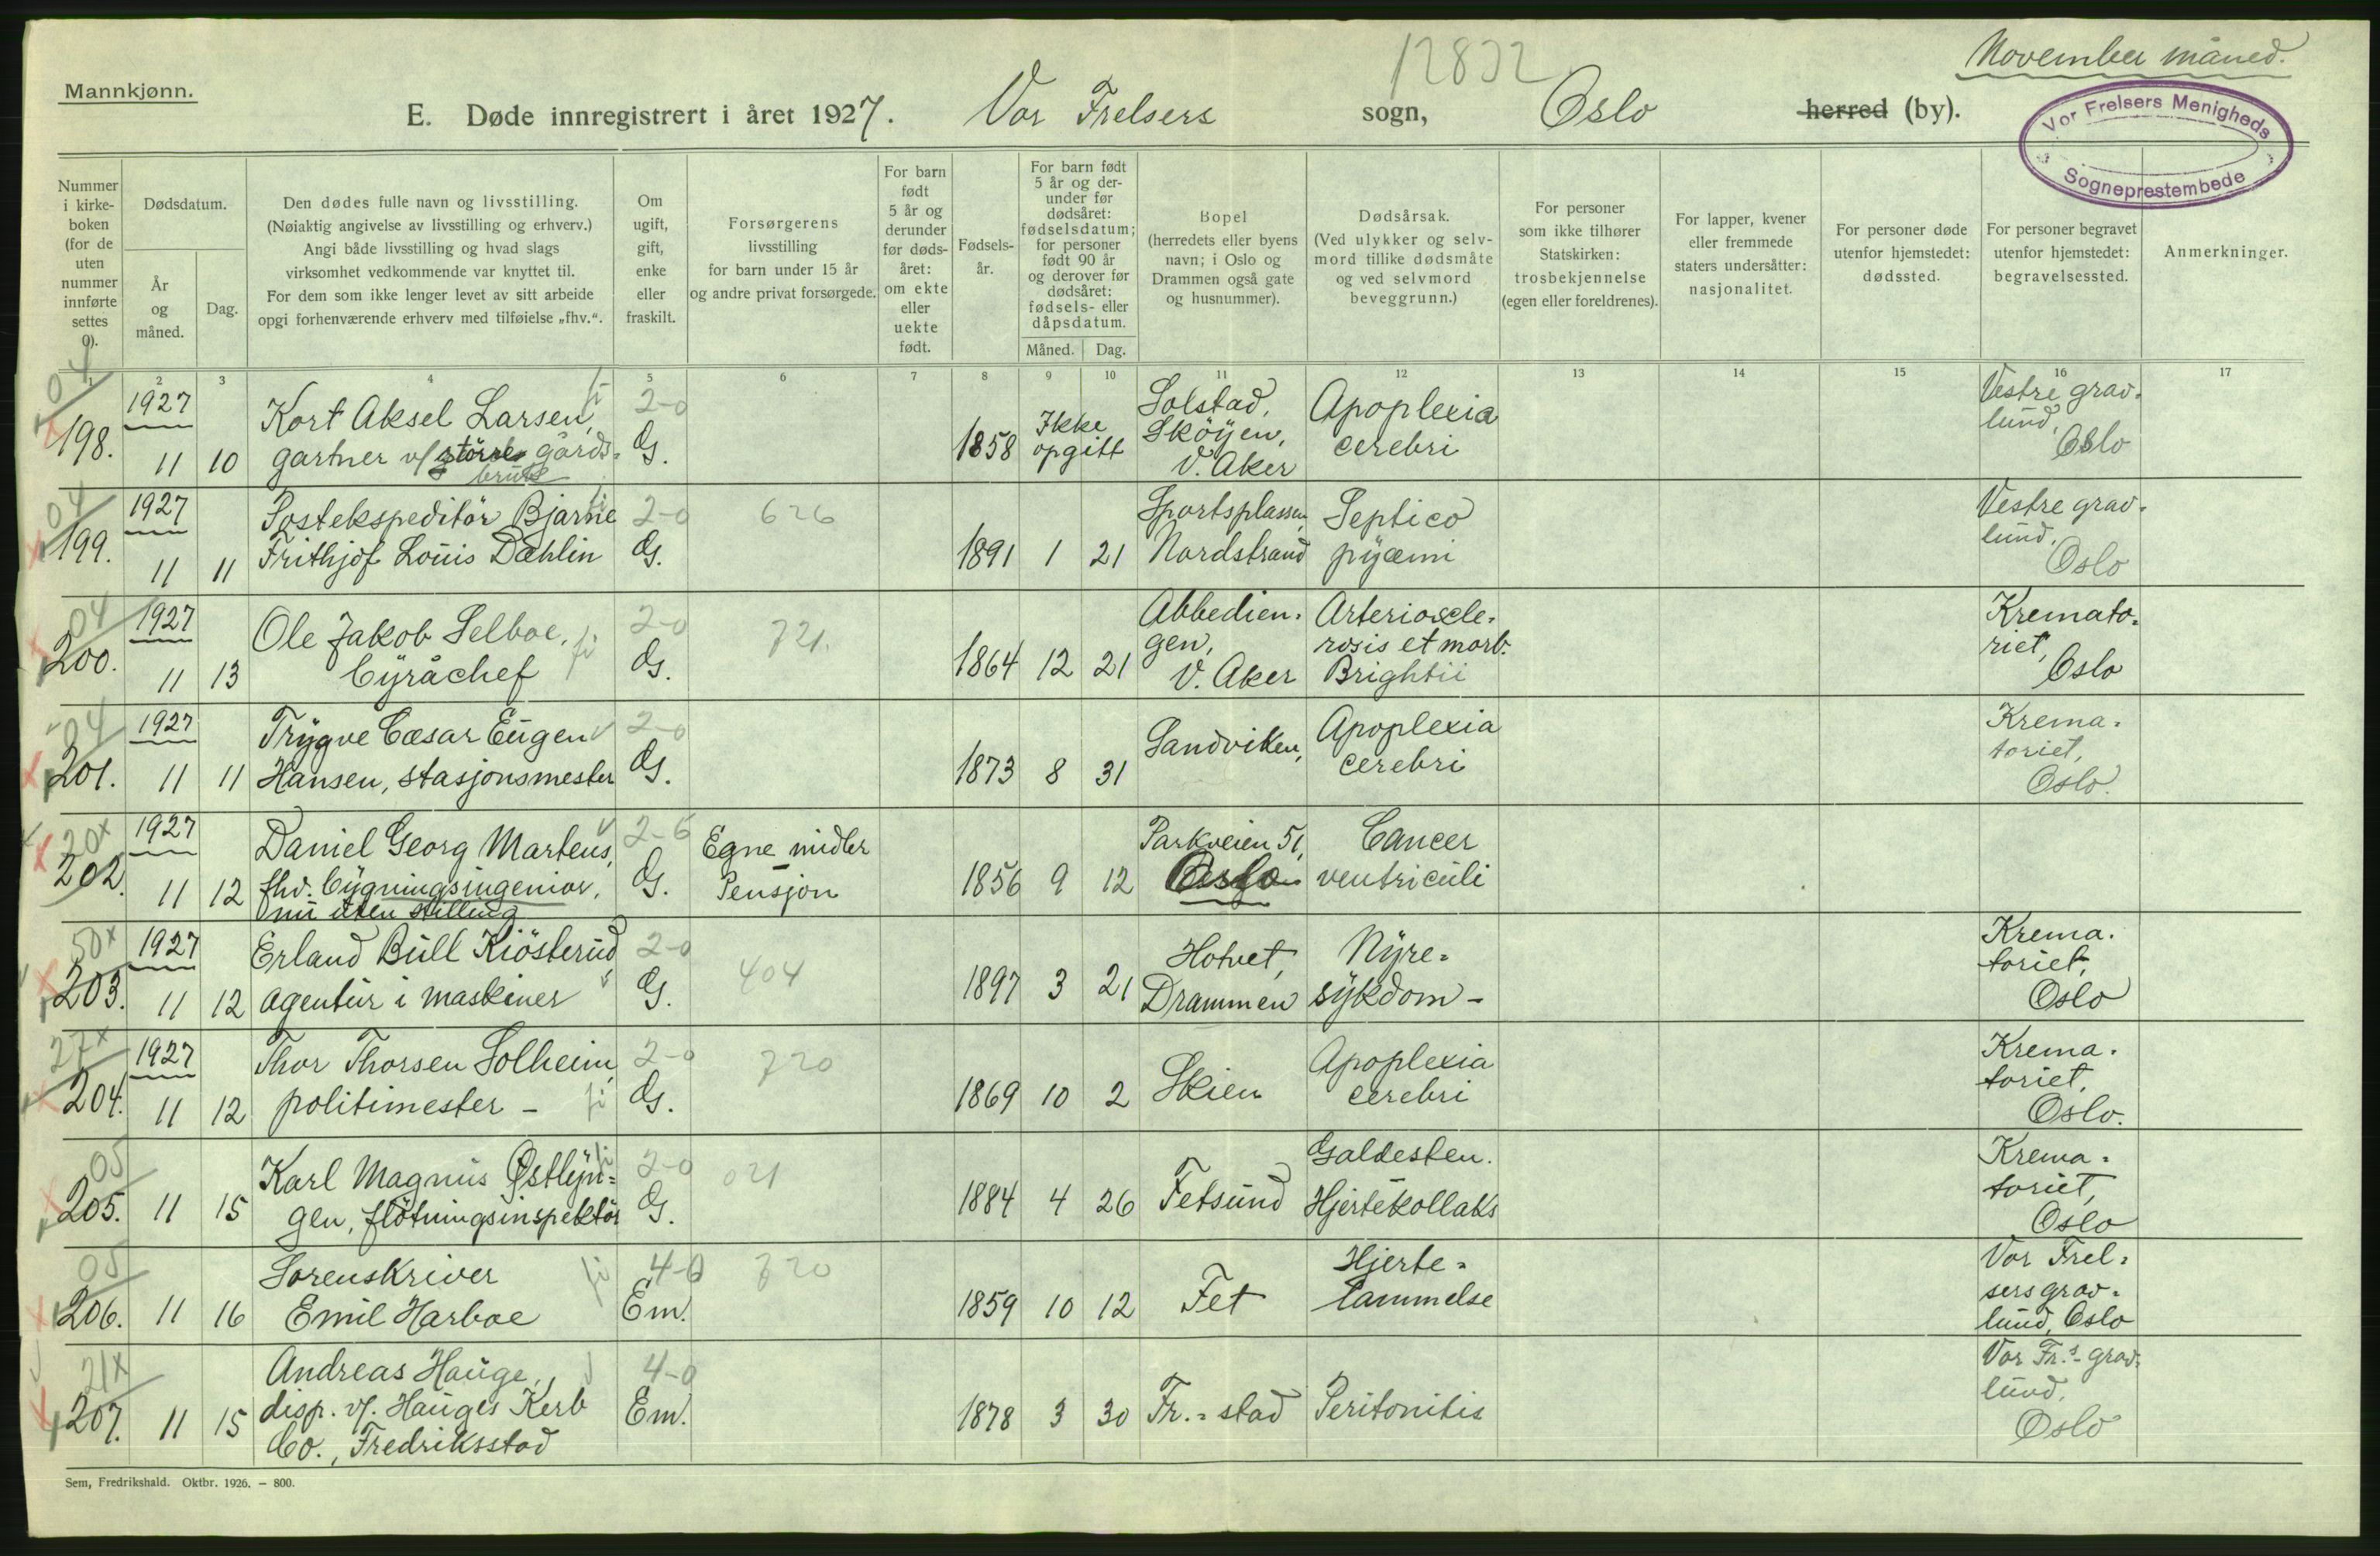 12832
November måned.
Mannkjønn.
E. Døde innregistrert i året 1927. Vor Frelsers sogn, Oslo herred (by).
Vor Frelsers Menigheds
Sogneprestembede
Nummer
i kirke-
boken
(for de
uten
nummer
innførte
settes
0).
Dødsdatum.
År
og
måned.
Dag.
Den dødes fulle navn og livsstilling.
(Nøiaktig angivelse av livsstilling og erhverv.)
Angi både livsstilling og hvad slags
virksomhet vedkommende var knyttet til.
For dem som ikke lenger levet av sitt arbeide
opgi forhenværende erhverv med tilføielse „fhv.“.
Om
ugift,
gift,
enke
eller
fraskilt.
Forsørgerens
livsstilling
for barn under 15 år
og andre privat forsørgede.
For barn
født
5 år og
derunder
før døds-
året:
om ekte
eller
uekte
født.
Fødsels-
år.
For barn født
5 år og der-
under før
dødsåret:
fødselsdatum;
for personer
født 90 år
og derover før
dødsåret:
fødsels- eller
dåpsdatum.
Måned. Dag.
Bopel
(herredets eller byens
navn; i Oslo og
Drammen også gate
og husnummer).
Dødsårsak.
(Ved ulykker og selv-
mord tillike dødsmåte
og ved selvmord
beveggrunn.)
For personer
som ikke tilhører
Statskirken:
trosbekjennelse
(egen eller foreldrenes).
For lapper, kvener
eller fremmede
staters undersåtter:
nasjonalitet.
For personer døde
utenfor hjemstedet:
dødssted.
For personer begravet
utenfor hjemstedet:
begravelsessted.
Anmerkninger.
1 2 3 4 5 6 7 8 9 10 11 12 13 14 15 16 17
04
198.
1927
11 10
Kort Aksel Larsen,
gartner v/ större gårds-
bruk
2-0
G.
1858
Ikke
opgitt
Solstad,
Sköyen,
V. Aker
Apoplexia
cerebri
Vestre grav-
lund,
Oslo
04
199.
1927
11 11
Postekspeditör Bjarne
Frithjof Louis Dæhlin
2-0
G.
626
1891 1 21
Sportsplassen,
Nordstrand
Septico
pyæmi
Vestre grav-
lund,
Oslo
04
200.
1927
11 13
Ole Jakob Selboe,
byråchef
2-0
G.
721.
1864 12 21
Abbedien-
gen,
V. Aker
Arterioscle-
rosis et morb.
Brightii
Kremato-
riet,
Oslo
04
201.
1927
11 11
Trygve Cæsar Eugen
Hansen, stasjonsmester
2-0
G.
1873 8 31
Sandviken,
Apoplexia
cerebri
Krema-
toriet,
Oslo.
20x
202.
1927
11 12
Daniel Georg Martens,
fhv. bygningsingeniør,
nu uten stilling
2-6
G.
Egne midler
Pensjon
1856 9 12
Parkveien 51,
Oslo
Cancer
ventriculi
50x
203.
1927
11 12
Erland Bull Kiösterud
agentur i maskiner
2-0
G.
404
1897 3 21
Hotvet,
Drammen
Nyre-
sykdom -
Krema-
toriet,
Oslo
27x
204.
1927
11 12
Thor Thorsen Solheim,
politimester -
2-0
G.
720
1869 10 2
Skien
Apoplexia
cerebri
Krema-
toriet,
Oslo.
05
205.
11 15
Karl Magnus Østlyn-
gen, flötningsinspektör
2-0
G.
021
1884 4 26
Fetsund
Galdesten.
Hjertekollaks
Krema-
toriet,
Oslo
05
206.
11 16
Sorenskriver
Emil Harboe
4-0
Em.
720
1859 10 12
Fet
Hjerte-
lammelse
Vor Frel-
sers grav-
lund, Oslo
21x
207.
11 15
Andreas Hauge,
disp. v/. Hauges Kerb
Co., Fredriksstad
4-0
Em.
1878 3 30
Fr.-stad
Peritonitis
Vor Fr.s- grav-
lund,
Oslo
Sem, Fredrikshald. Oktbr. 1926. – 800.